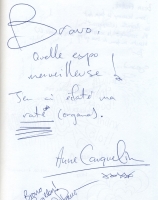 Bravo,
Quelle expo
merveilleuse !
J'en ai éclaté ma
rate (organe).
Anne Cauquelin
Bravo